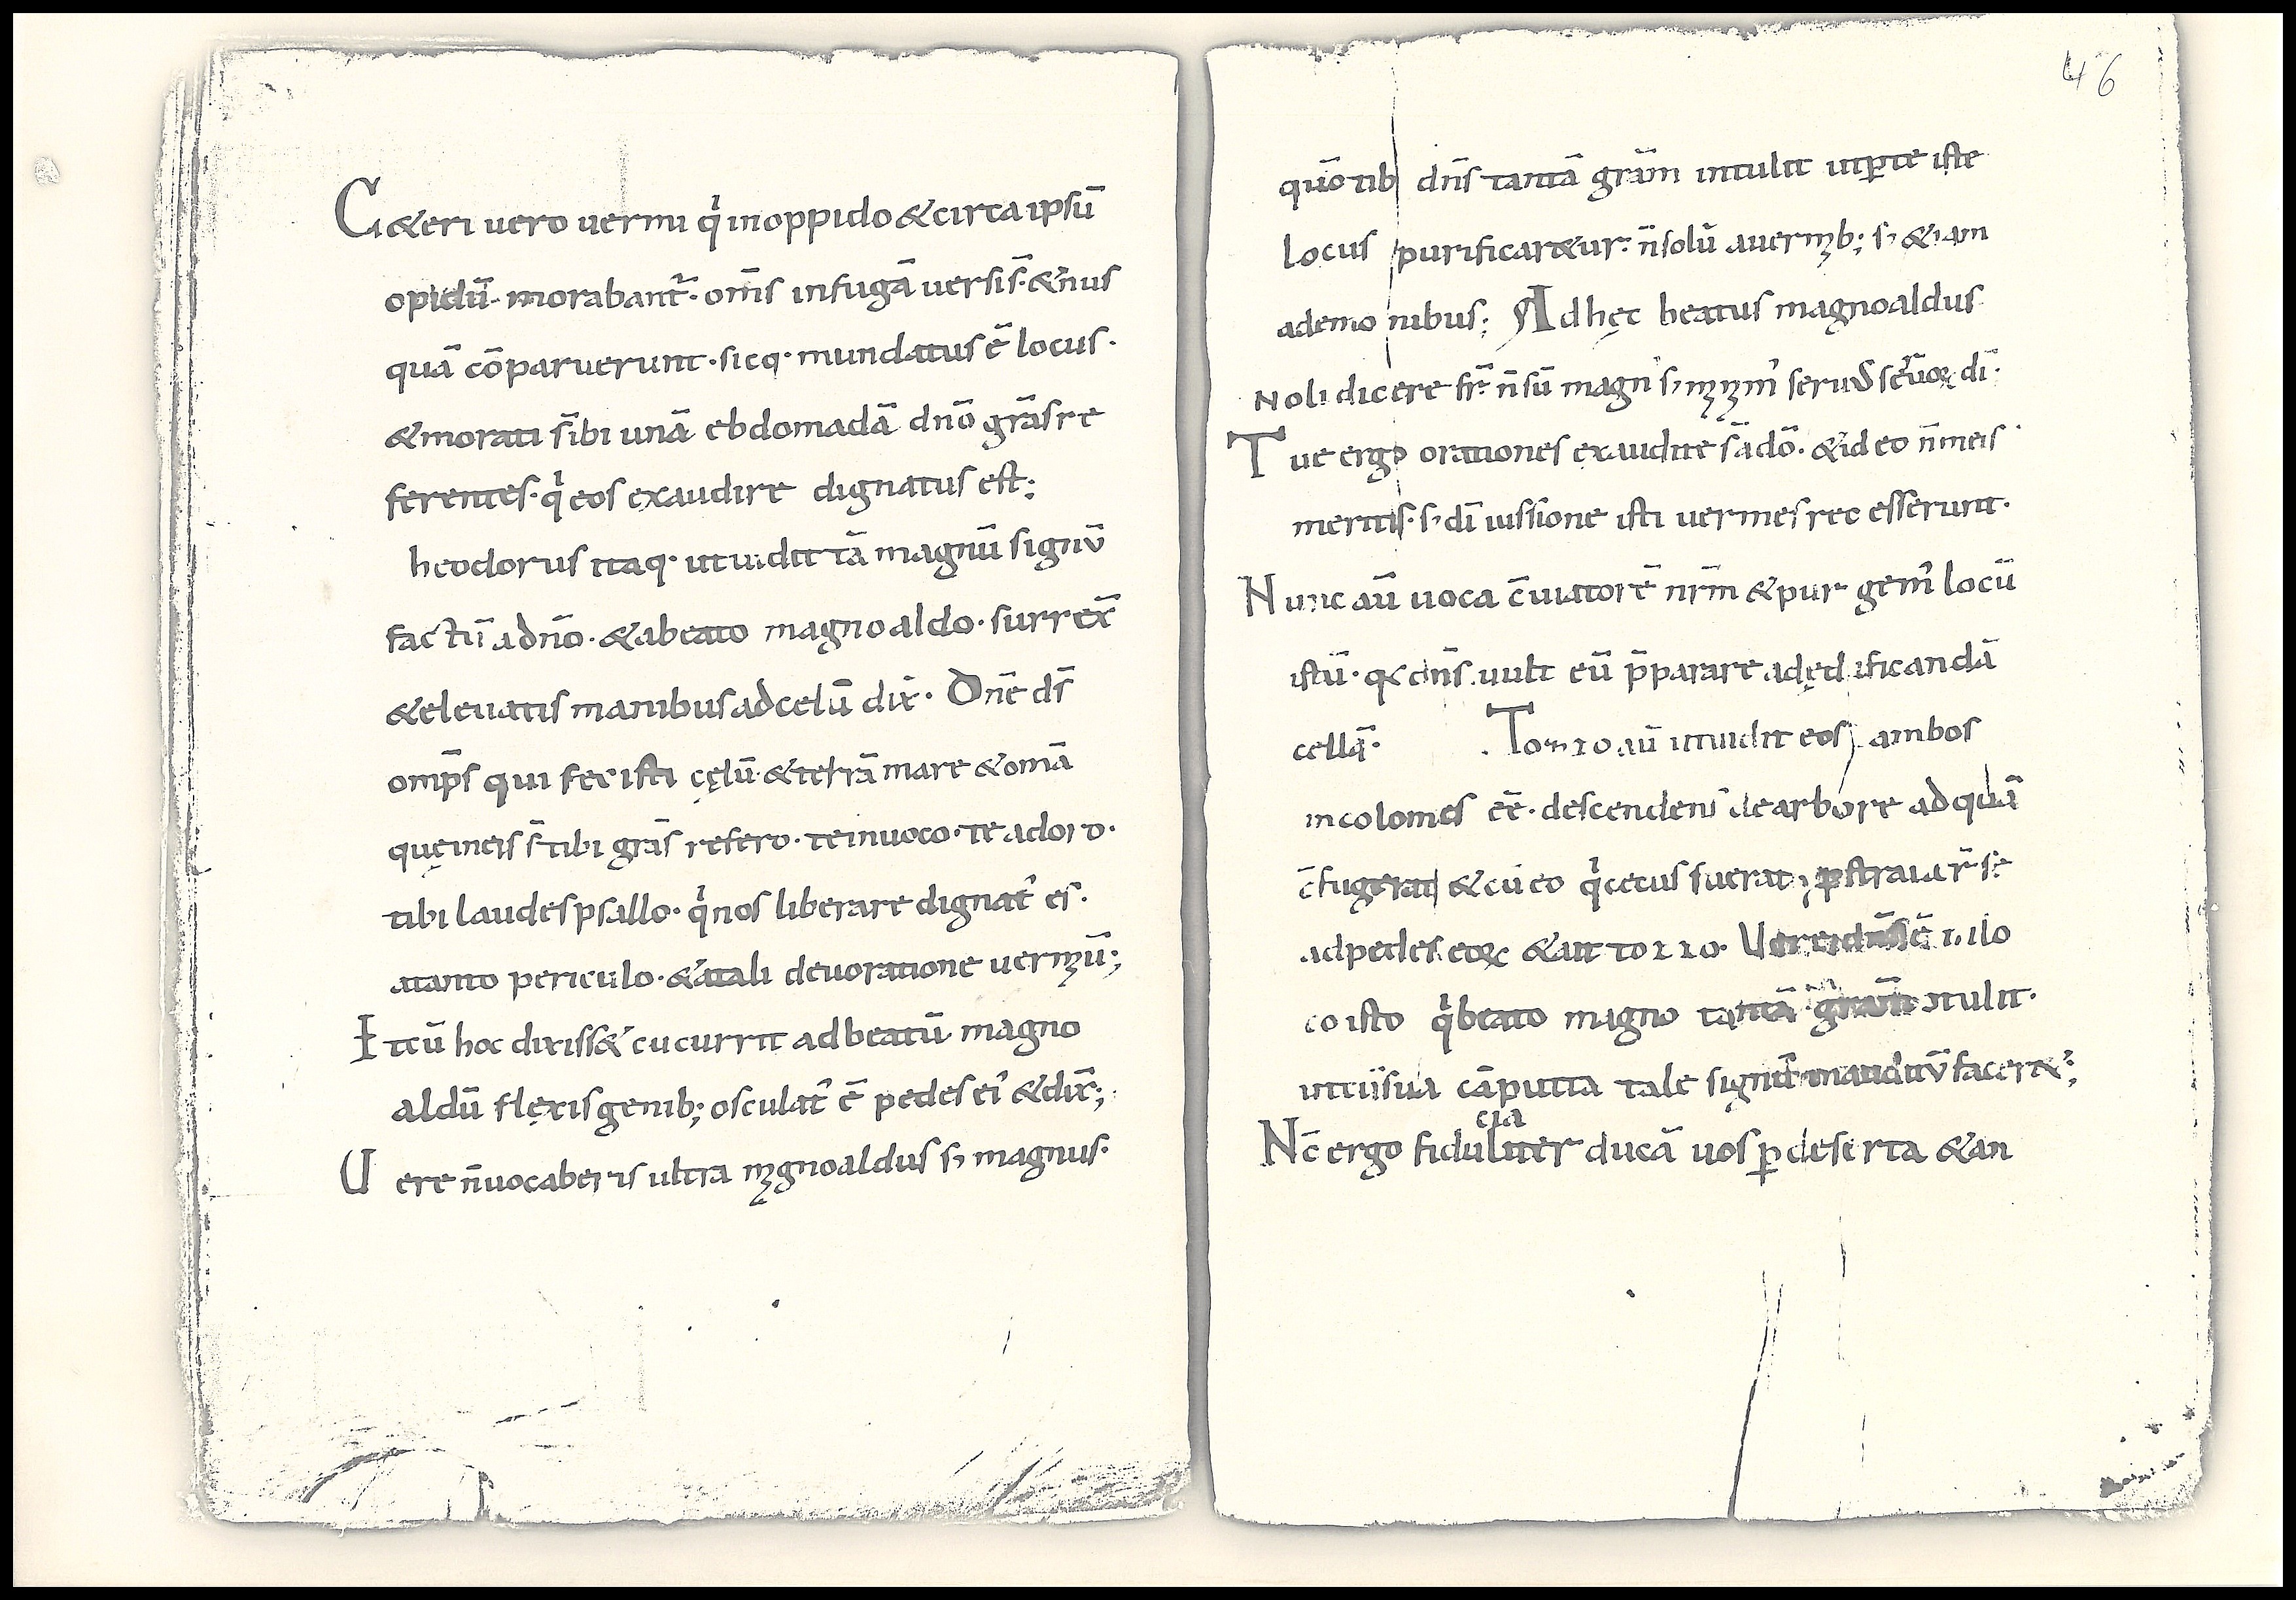 C&eri uero uermi q̇ inoppido & circa ipsū
opidū· morabant̄· om̄s infugā uersis̄· & n̄us
quā cō paruerunt· sicq· mundatus ē locus·
& morati s̄ ibi unā ebdomadā dn̄o grās re
ferentes· q̇ eos exaudire dignatus est;
heodorus itaq· ut uidit tā magnū signū
factū adn̄o· & abeato magnoaldo· surrex̄
& eleuatis manibus ad celū dix̄· Dn̄e ds̄
omp̄s qui fecisti cęlū & terrā mare & om̄a
quę ineis s̄ tibi grās refero· te inuoco· te adoro·
tibi laudes psallo· q̇ nos liberare dignat᾿ es·
atanto periculo· & atali deuoratione uermiū;
Et cū hoc dixiss& cucurrit ad beatū magno
aldū flexis genib; osculat᾿ ē pedes ei᾿ & dix̄;
Uere n̄ uocaberis ultra magnoaldus s; magnus·
46
quō tib dn̄s tantā grām intulit ut p te iste
locus purificar&ur· n̄ solū auermib; s; &iam
ademonibus; Ad hęc beatus magnoaldus
Noli dicere fr̄· n̄ sū magn᾿ s; minim᾿ seruus seruoꝝ dī·
Tue ergo orationes exaudite s̄ adō· & ideo n̄ meis
meritis· s; dī iussione isti uermes recesserunt·
Nunc aū uoca c̄uiatorē nrm̄ & purgem᾿ locū
istū· q dn̄s uult eū p̄parare ad ędificandā
cellā· Tozzo aū ut uidit eos ambos
incolomes eē· descendens de arbore ad quā
c̄fugerat & cū eo q̇ cecus fuerat; ꝓstrauer̄ se
ad pedes eoꝝ & ait tozzo· Uere dn̄s ē in lo
co isto q̇ beato magno tantā grām ɔtulit·
ut cū sua cāputta tale signū mandatū facer&;
cia
Nc̄ ergo fiduliter ducā uos p deserta & an